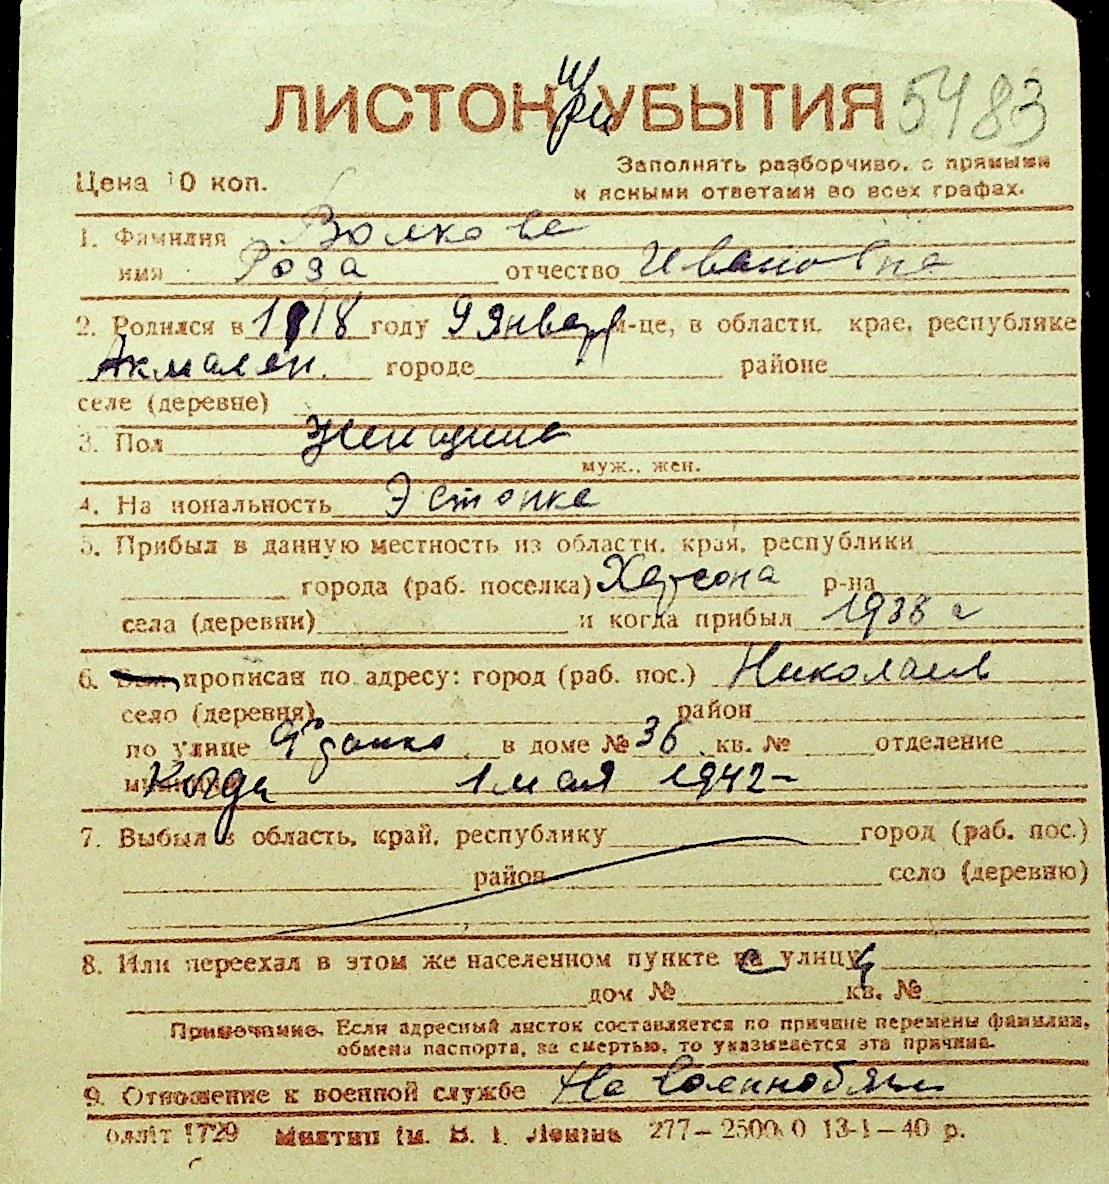 ЛИСТОК УБЫТИЯ 5483
при
Цена 10 коп.
Заполнять разборчиво, с прямыми
и ясными ответами во всех графах.
1. Фамилия Волкова
имя Роза отчество Ивановна
2. Родился в 1918 году 9 январ м-це, в области, крае, республике
Акмолен. городе районе
селе (деревне)
3. Пол Женщина
муж., жен.
4. Национальность Эстонка
5. Прибыл в данную местность из области, края, республики
города (раб. поселка) Херсона р-на
села (деревни) и когда прибыл 1938 г
6. прописан по адресу: город (раб. пос.) Николаев
село (деревня) район
по улице в доме № 36 кв. № отделение
Когда 1 мая 1942
7. Выбыл в область, край, республику город (раб. пос.)
район село (деревню)
8. Или переехал в этом же населенном пункте с улиц
дом № кв. №
Примечание. Если адресный листок составляется по причине перемены фамилии,
обмена паспорта, за смертью, то указывается эта причина.
9. Отношение к военной службе Не военнобязан
оллiт 1729 Миктип iм. В. I. Ленiна 277—25000 13-I—40 р.